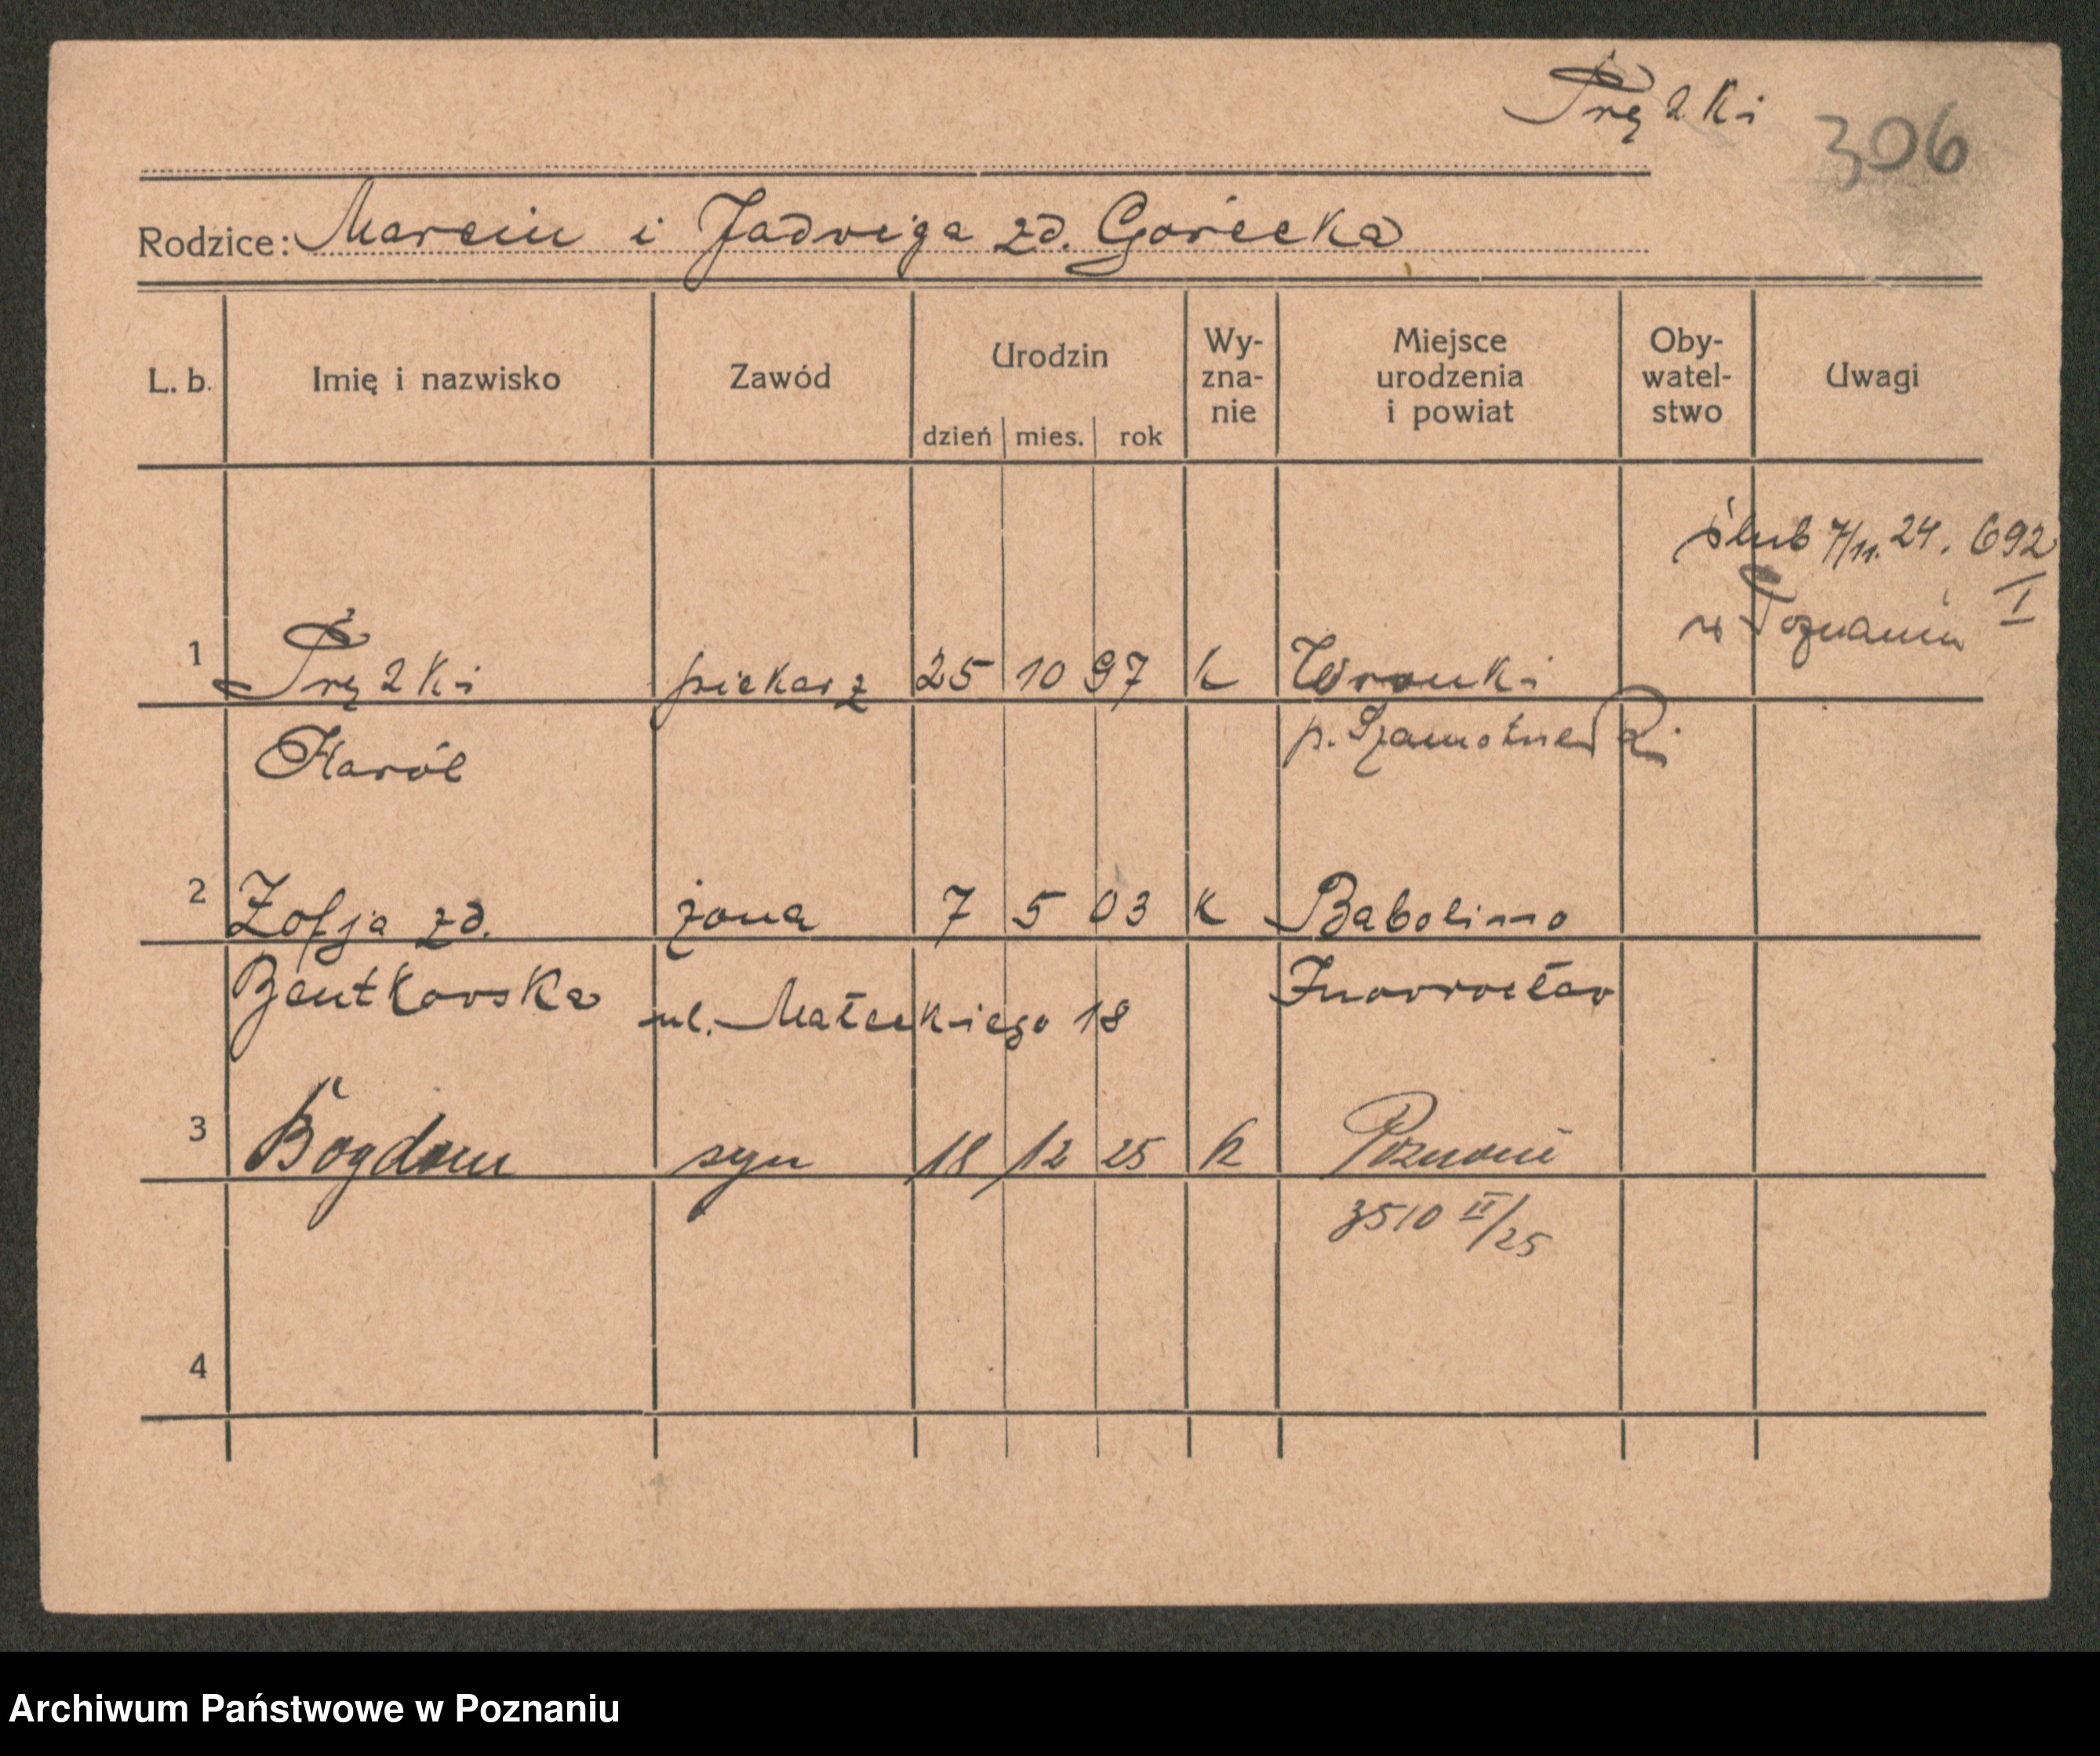 Prężki
306
Rodzice: Marcin i Jadwiga zd. Górecka
L. b. Imię i nazwisko Zawód Urodzin dzień mies. rok Wy-zna-nie Miejsce urodzenia i powiat Oby-watel-stwo Uwagi
ślub 7/11. 24. 692
w Poznaniu I
1 Prężki piekarz 25 10 97 k Wronki
Karól p. Szamotulski
2 Zofja zd. żona 7 5 03 k Babolimo
Bentkowska ul. Małeckiego 18 Inowrocław
3 Bogdan syn 18 12 25 k Poznań
3510 II/25
4
Archiwum Państwowe w Poznaniu